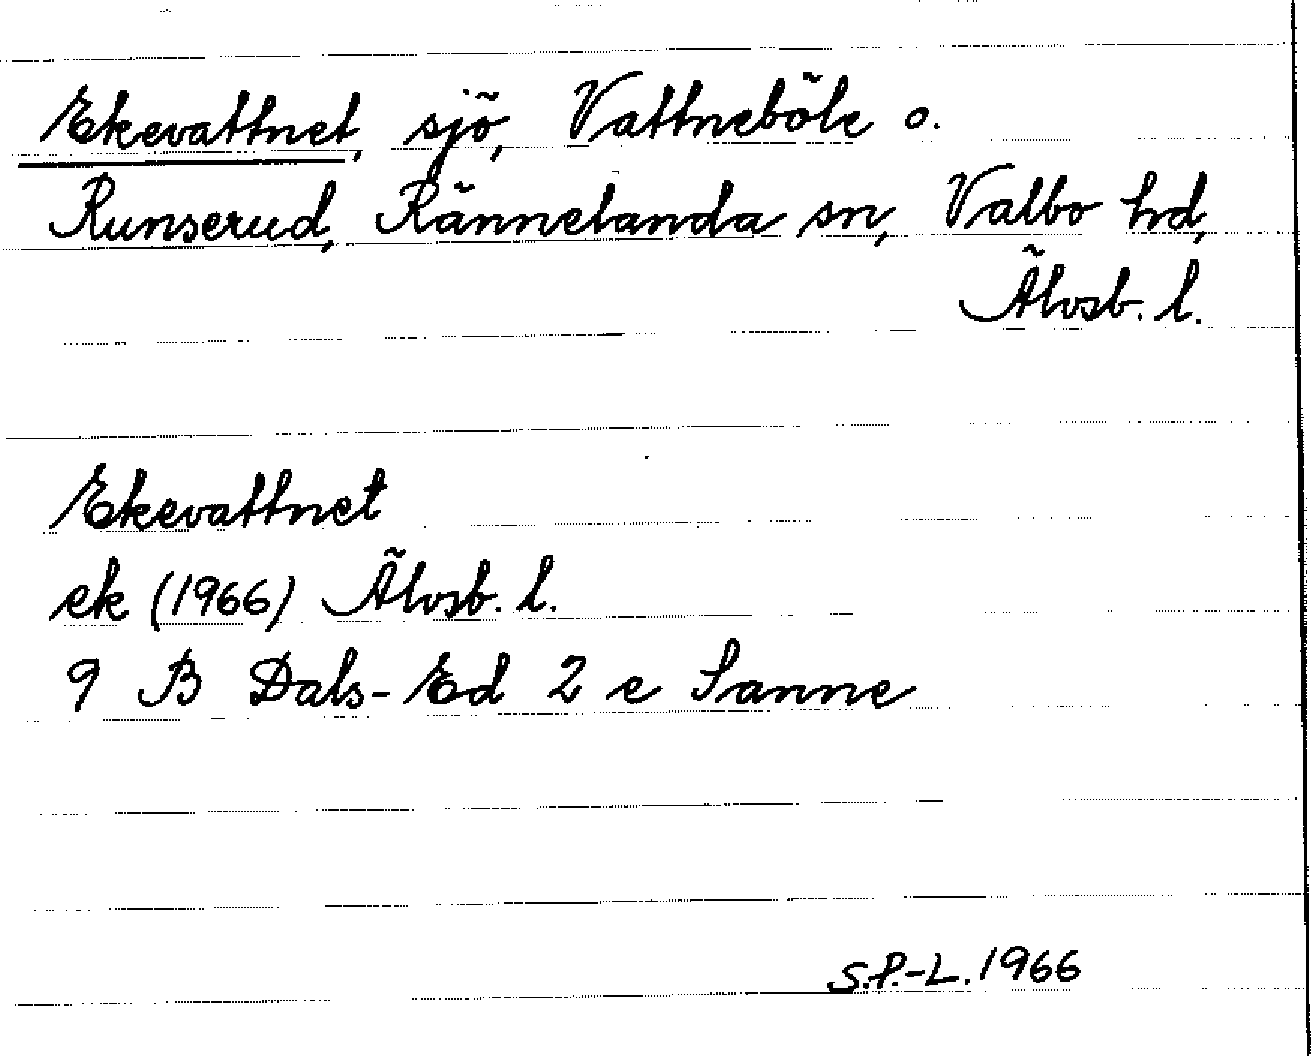 Ekevattnet, sjö, Vattneböle o.
Runserud, Rännelanda sn, Valbo hd,
Älvsb. l.
Ekevattnet
ek (1966) Älvsb. l.
9 B Dals-Ed 2 e Sanne
S.P.-L. 1966